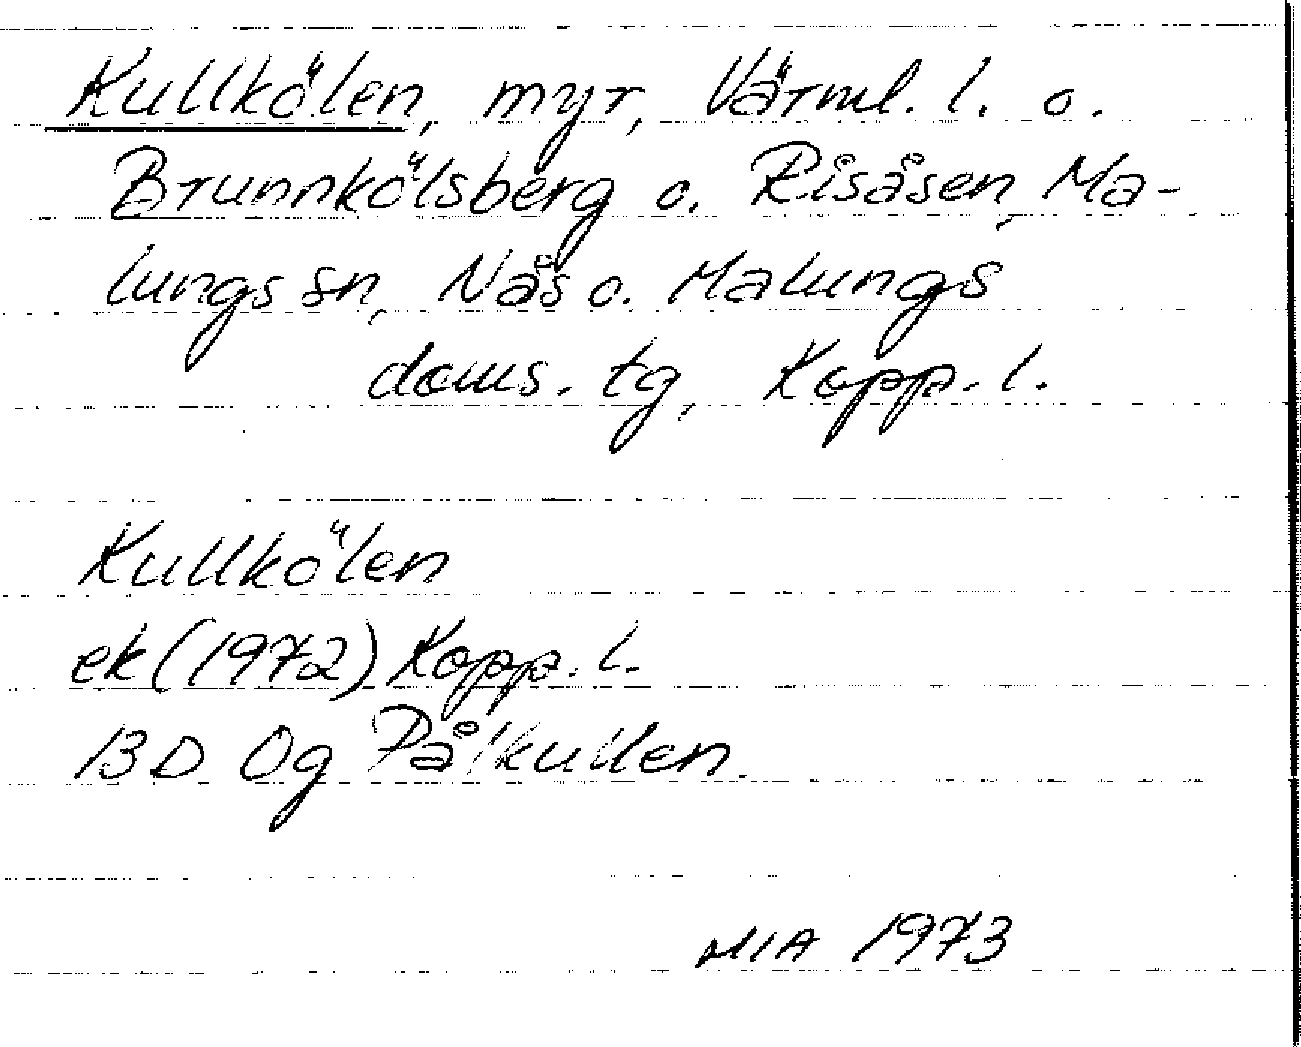 Kullkölen, myr, Värml. l. o.
Brunnkölsberg o. Risåsen, Ma-
lungs sn, Nås o. Malungs
doms. tg, Kopp. l.
Kullkölen
ek (1972) Kopp. l.
13 D Og Pålkullen
MIA 1973